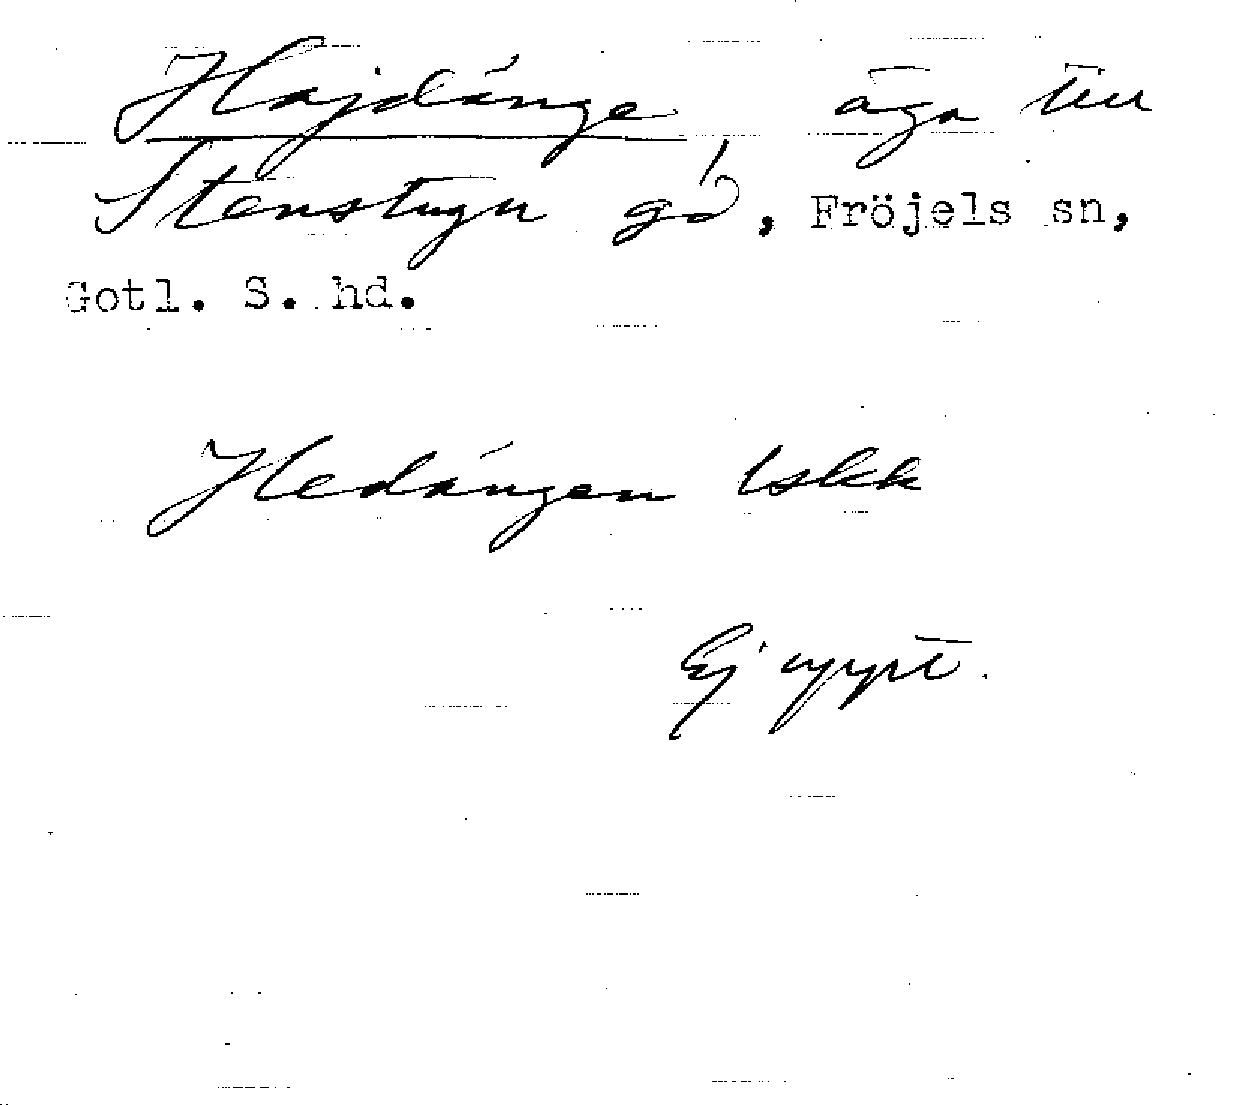 Hajdänge äga till
Stenstugu gd, Fröjels sn,
Gotl. S. hd.
Hedängen Iskk
Ej uppt.